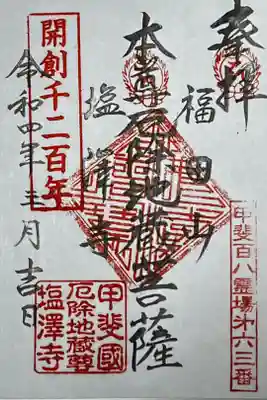 奉拝
甲斐百八霊場㐧六三番
福田山
本尊厄除地蔵菩薩
塩澤寺
開創千二百年
令和四年三月吉日
甲斐國
厄除地蔵尊
塩澤寺